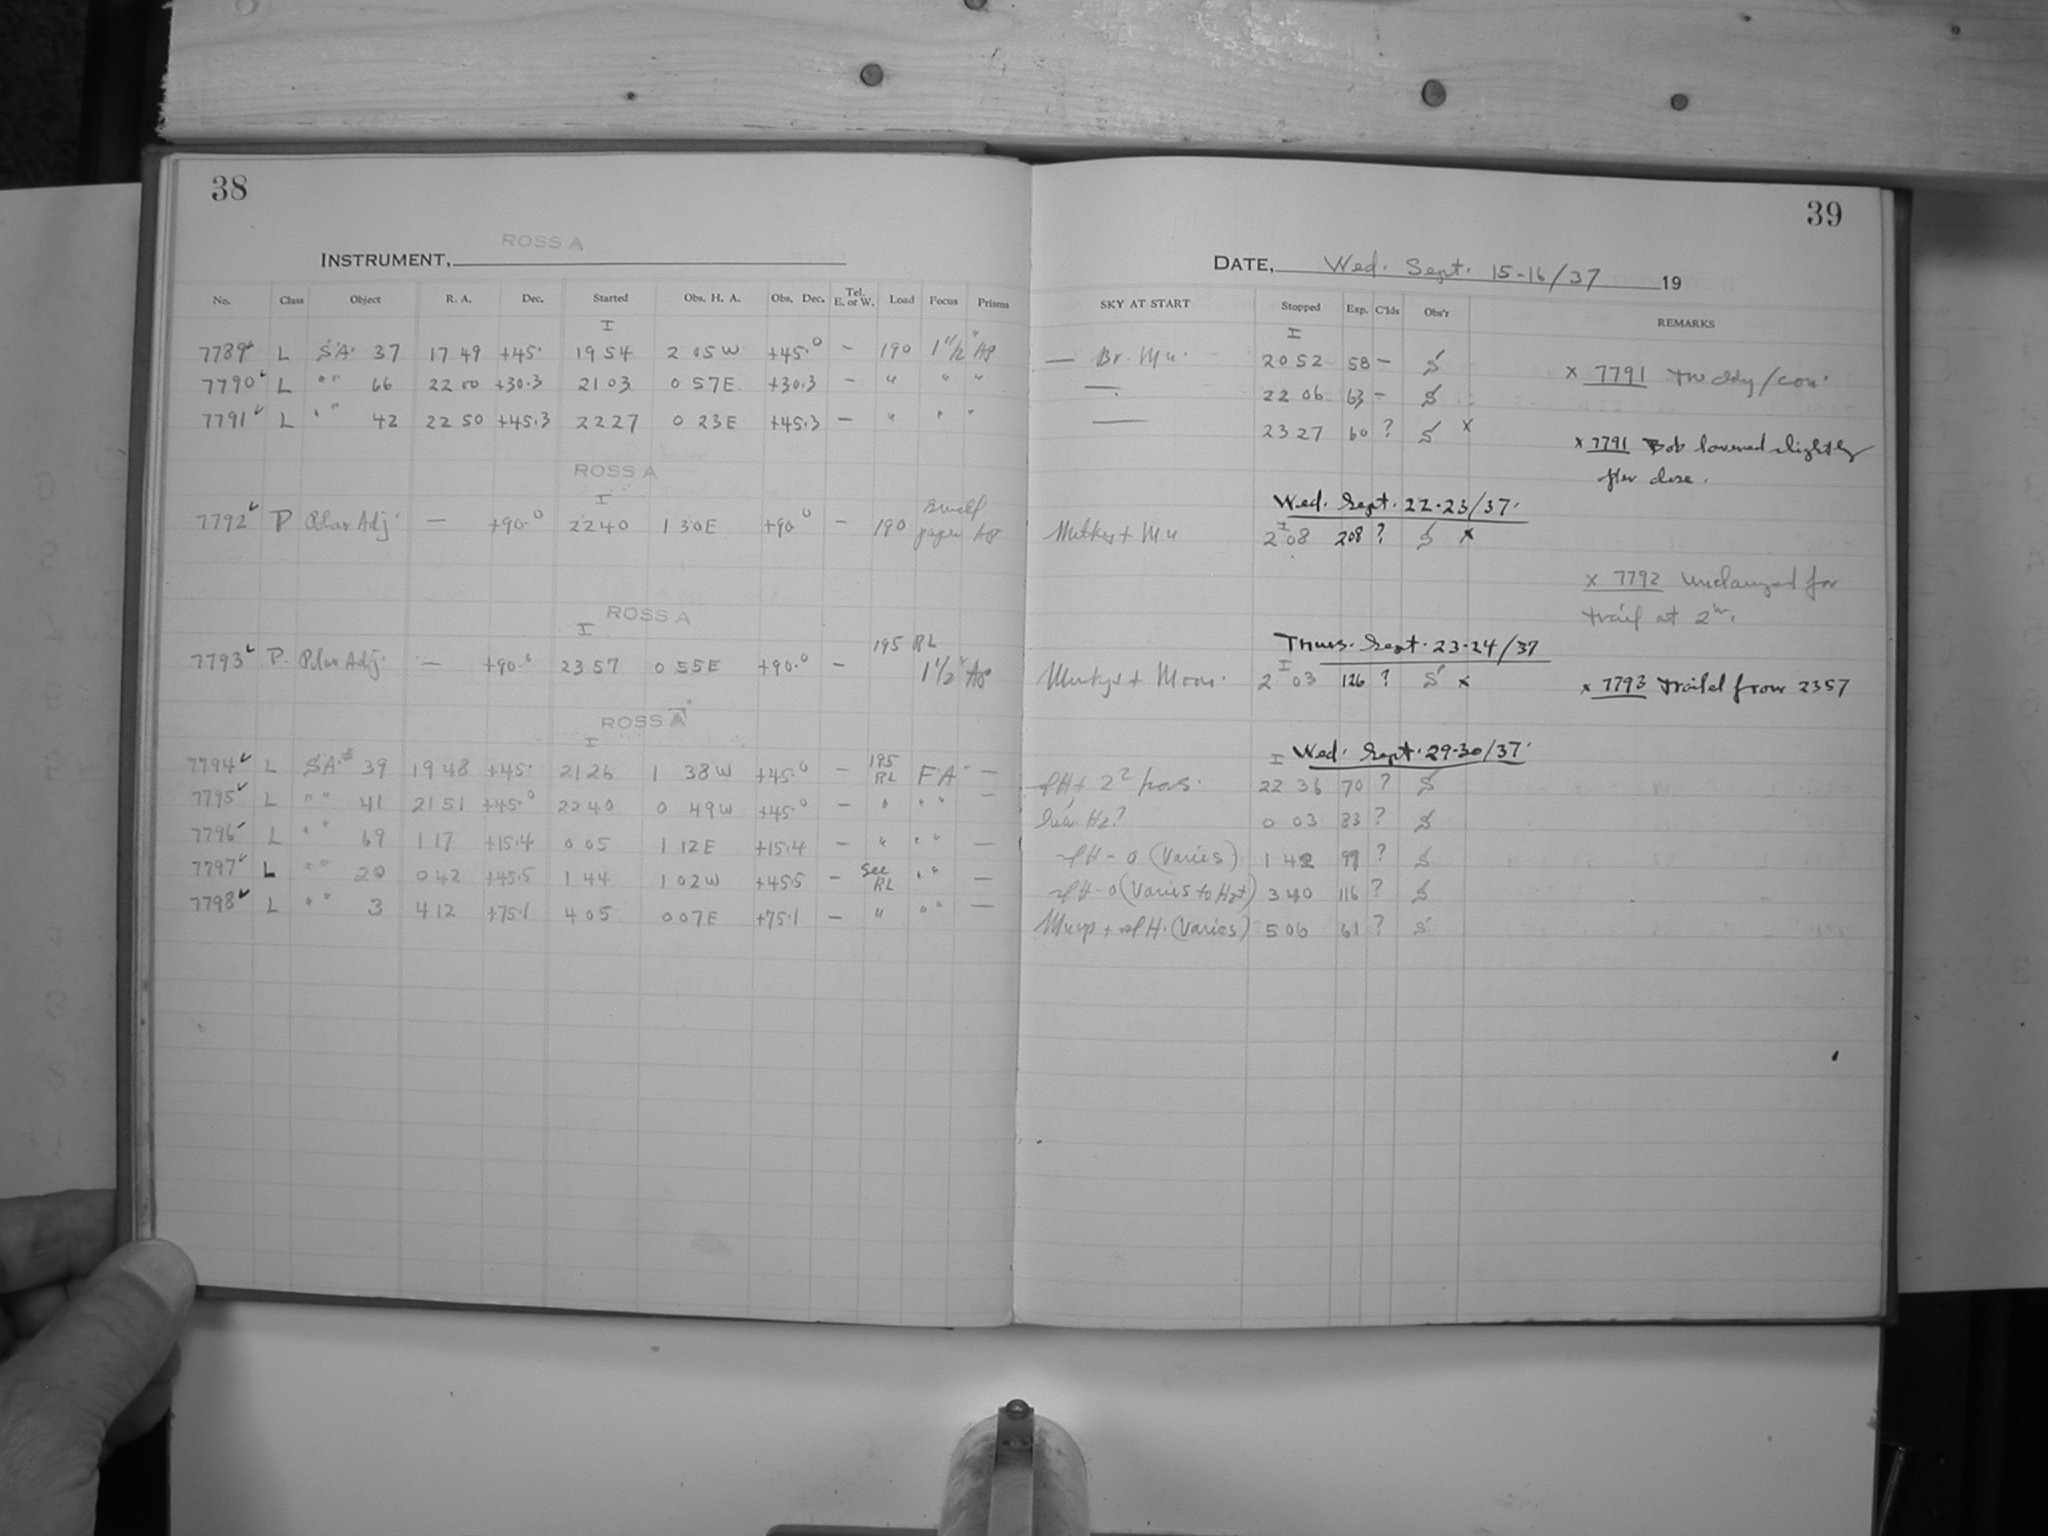 38
ROSS A
INSTRUMENT,
No. Class Object R. A. Dec. Started Obs. H. A. Obs. Dec. Tel. E. or W. Load Focus Prisms
I
7789 L S.A. 37 17 49 +45. 19 54 2 05 W +45.0 – 190 1 1/2" Ap
7790 L " " 66 22 00 +30.3 21 03 0 57 E +30.3 – " " "
7791 L " " 42 22 50 +45.3 22 27 0 23 E +45.3 – " " "
ROSS A
I
7792 P Polar Adj. — +90.0 22 40 1 30 E +90.0 – 190 small paper Ap
ROSS A
I
7793 P Polar Adj. — +90.0 23 57 0 55 E +90.0 – 195 RL 1 1/2" Ap
ROSS A
I
7794 L S.A. 39 19 48 +45. 21 26 1 38 W +45.0 – 195 RL F A. —
7795 L " " 41 21 51 +45.0 22 40 0 49 W +45.0 – " " " —
7796 L " " 69 1 17 +15.4 0 05 1 12 E +15.4 – " " " —
7797 L " " 20 0 42 +45.5 1 44 1 02 W +45.5 – See RL " " —
7798 L " " 3 4 12 +75.1 4 05 0 07 E +75.1 – " " " —
39
DATE, Wed. Sept. 15-16/37 19
SKY AT START Stopped Exp. C'lds Obs'r REMARKS
I
— Br. Mn. 20 52 58 – S
— 22 06 63 – S
— 23 27 60 ? S x
x 7791
x 7791 Bob lowered slightly
after close.
Wed. Sept. 22-23/37.
I
Milky + Mn 2 08 208 ? S x
x 7792 Unclamped for
trail at 2h.
Thurs. Sept. 23-24/37
I
Murky + Moon. 2 03 126 ? S x
x 7793 Trailed from 2357
Wed. Sept. 29-30/37.
I
22 36 70 ? S
Hz? 0 03 83 ? S
H-0 (Varies) 1 42 99 ? S
H-0 (Varies to Hz+) 3 40 116 ? S
Mn up + H. (Varies) 5 06 61 ? S